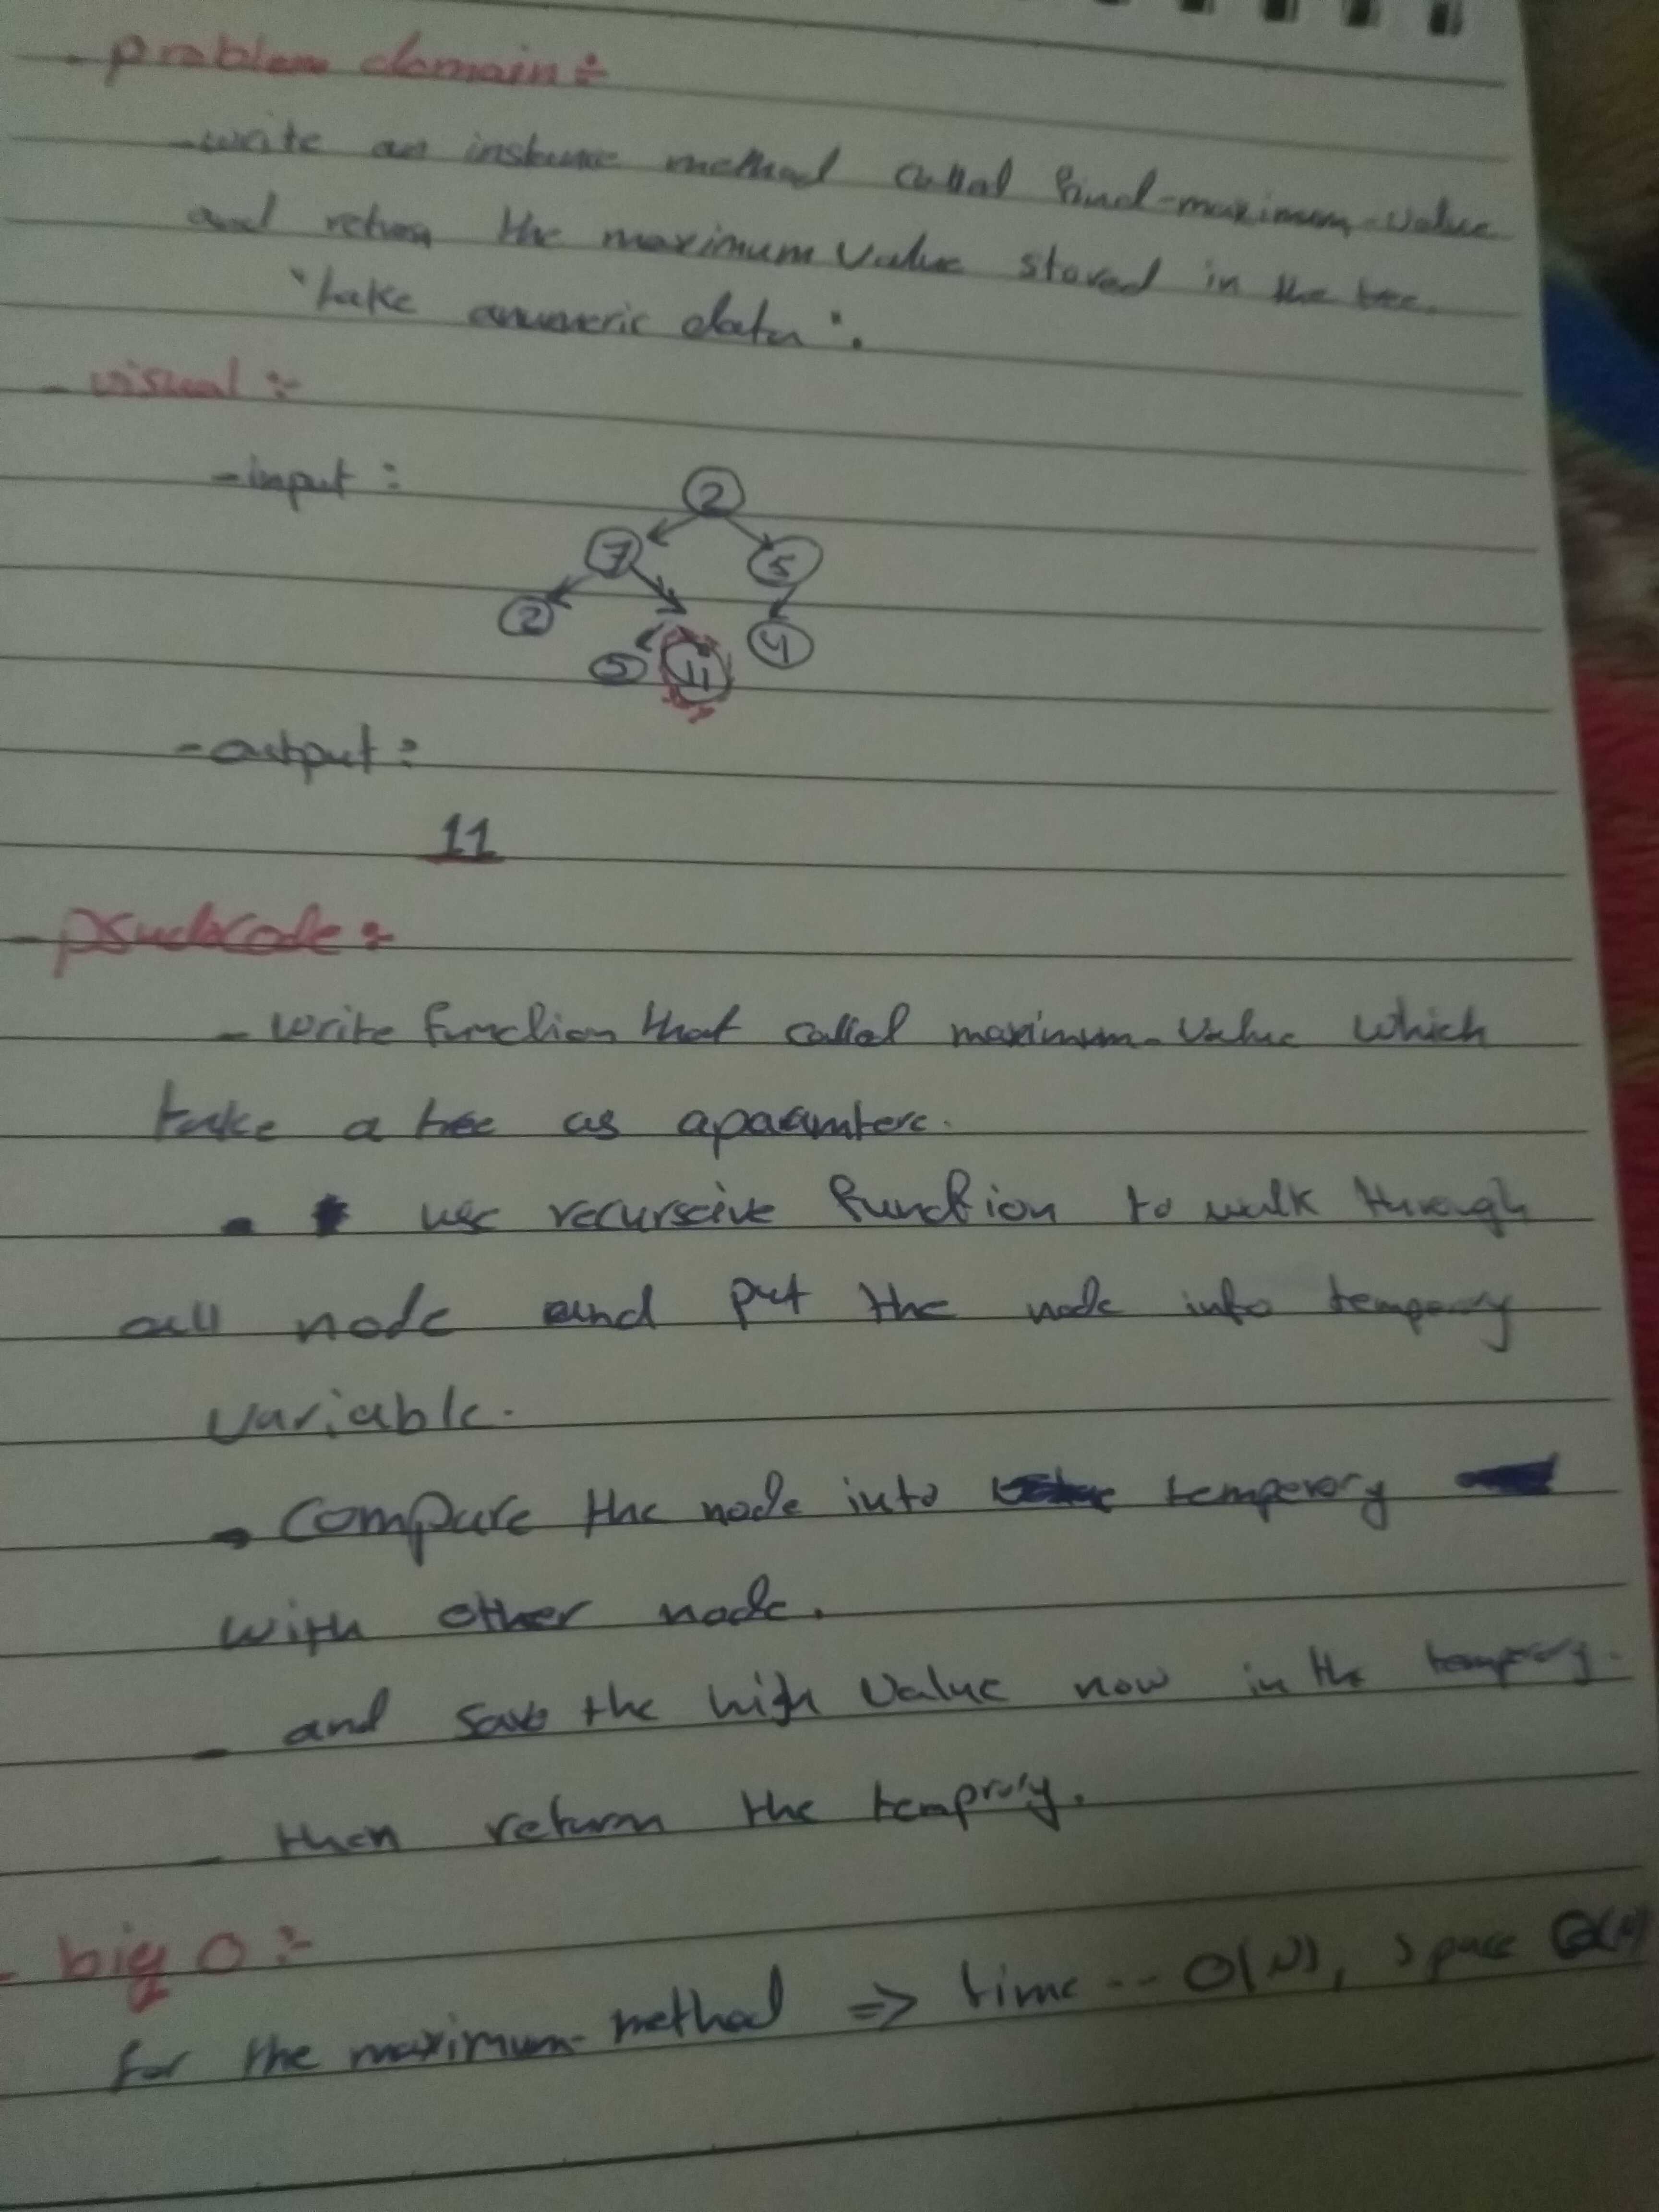 - problem domain :-
- write an instance method called find-maximum-value
and return the maximum value stored in the tree.
"take anumeric data".
- visual :-
- input :
2
7 5
2 4
5 11
- output :
11
- psudocode :-
- write function that called maximum-value which
take a tree as aparamters.
- use recurseive function to walk through
all node and put the node into temporary
variable.
- Compare the node into temperory
with other node.
- and save the high value now in the temprory.
- then return the temprory.
- big O :-
for the maximum-method => time -- O(N), space